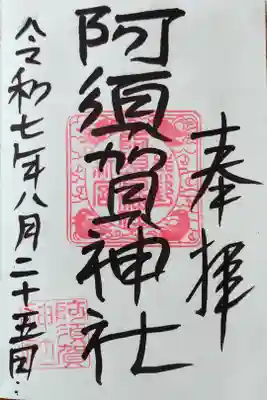 奉拝
阿須賀神社
令和七年八月二十五日